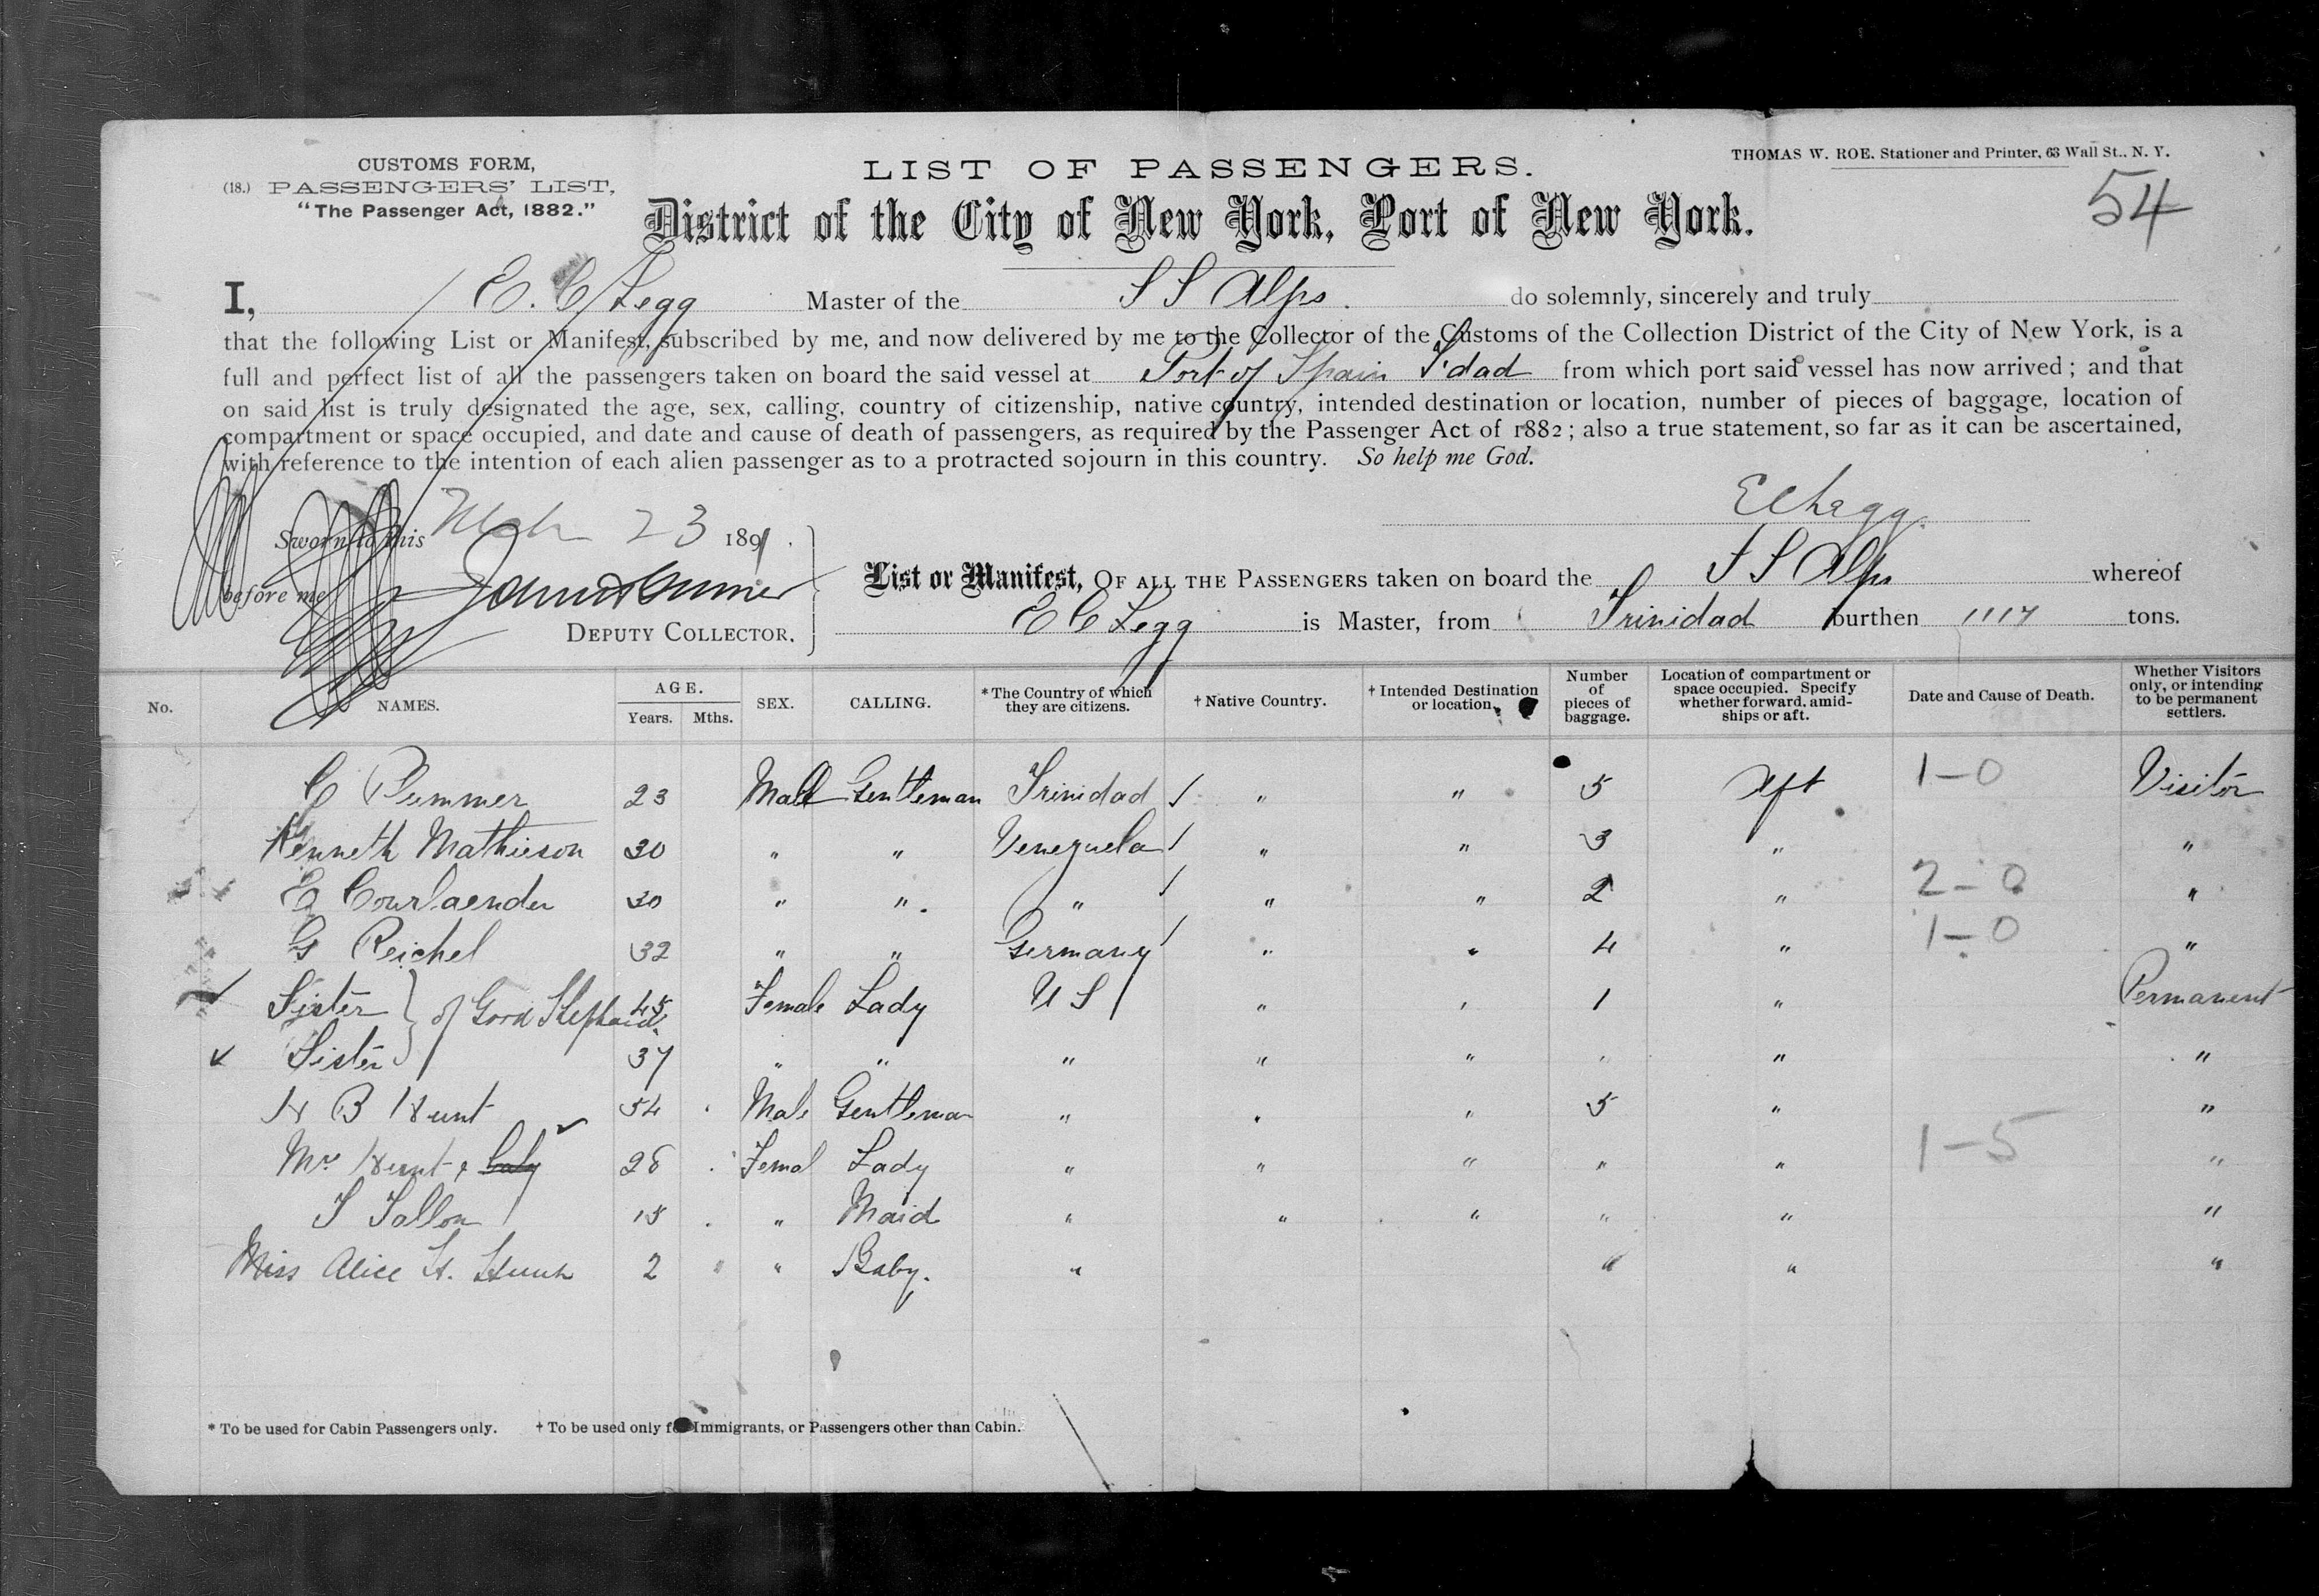 CUSTOMS FORM,
(18.) PASSENGERS' LIST,
"The Passenger Act, 1882."
LIST OF PASSENGERS.
THOMAS W. ROE. Stationer and Printer, 63 Wall St., N. Y.
54
District of the City of New York, Port of New York.
I, E. C. Legg Master of the S S Alps. do solemnly, sincerely and truly
that the following List or Manifest, subscribed by me, and now delivered by me to the Collector of the Customs of the Collection District of the City of New York, is a
full and perfect list of all the passengers taken on board the said vessel at Port of Spain T'dad from which port said vessel has now arrived; and that
on said list is truly designated the age, sex, calling, country of citizenship, native country, intended destination or location, number of pieces of baggage, location of
compartment or space occupied, and date and cause of death of passengers, as required by the Passenger Act of 1882; also a true statement, so far as it can be ascertained,
with reference to the intention of each alien passenger as to a protracted sojourn in this country. So help me God.
E C Legg.
Sworn to this Mch 23 1891.
before me
DEPUTY COLLECTOR.
List or Manifest, OF ALL THE PASSENGERS taken on board the S S Alps whereof
E C Legg is Master, from Trinidad burthen 1117 tons.
No. NAMES. AGE. Years. Mths. SEX. CALLING. *The Country of which they are citizens. † Native Country. † Intended Destination or location. Number of pieces of baggage. Location of compartment or space occupied. Specify whether forward, amidships or aft. Date and Cause of Death. Whether Visitors only, or intending to be permanent settlers.
C Plummer 23 Male Gentleman Trinidad " " 5 Aft 1-0 Visitor
Kenneth Mathieson 30 " " Venezuela " " 3 " "
E Courlaender 30 " " " " " 2 " 2-0 "
G Reichel 32 " " Germany " " 4 " 1-0 "
Sister } of Good Shepherd 45 Female Lady U S " " 1 " Permanent
Sister } 37 " " " " " " " "
H B Hunt 54 Male Gentleman " " " 5 " "
Mrs Hunt & baby 26 Femal Lady " " " " " 1-5 "
S Tallon 15 " Maid " " " " " "
Miss Alice H. Hunt 2 " " Baby. " " " "
* To be used for Cabin Passengers only. † To be used only for Immigrants, or Passengers other than Cabin.